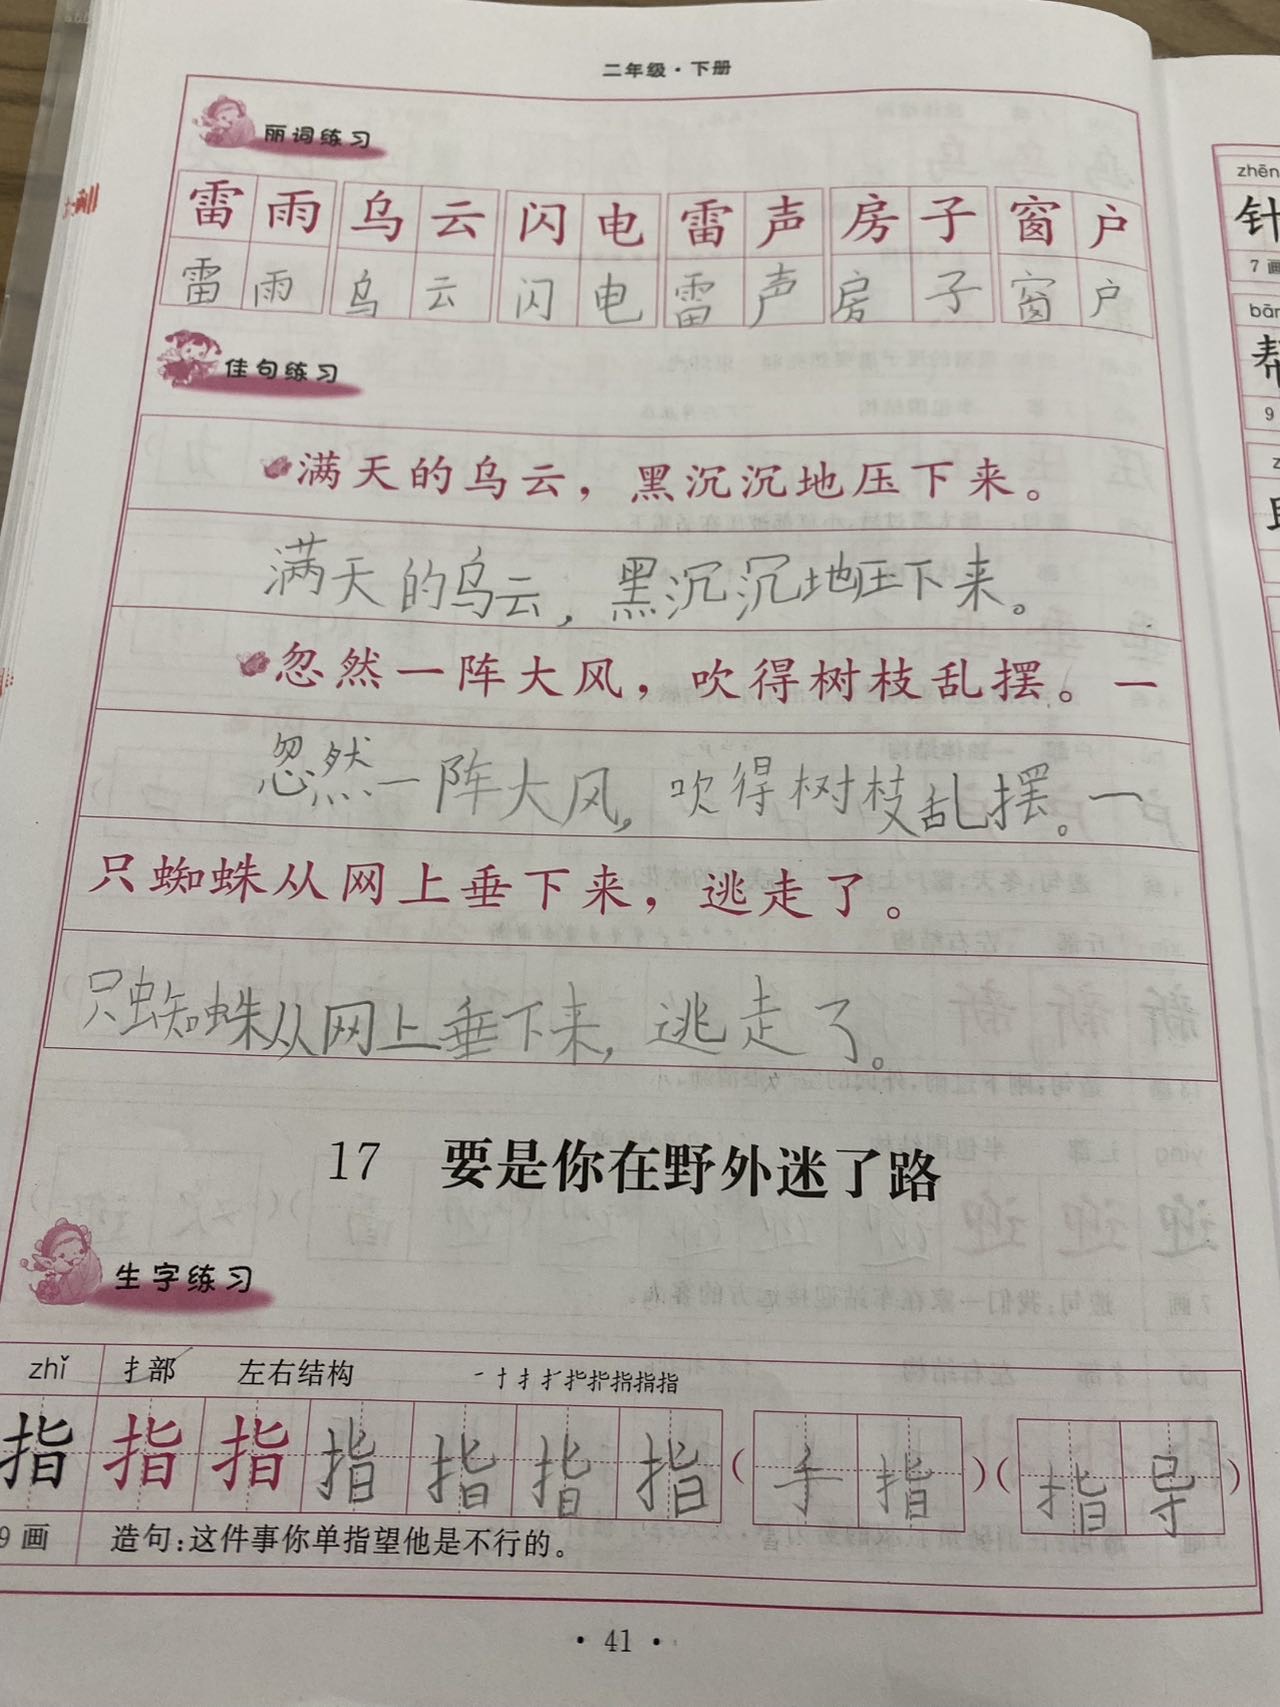 二年级·下册
丽词练习
雷雨 乌云 闪电 雷声 房子 窗户
雷雨 乌云 闪电 雷声 房子 窗户
佳句练习
满天的乌云，黑沉沉地压下来。
满天的乌云，黑沉沉地压下来。
忽然一阵大风，吹得树枝乱摆。一
忽然一阵大风，吹得树枝乱摆。一
只蜘蛛从网上垂下来，逃走了。
只蜘蛛从网上垂下来，逃走了。
17 要是你在野外迷了路
生字练习
zhǐ 扌部 左右结构
指 指 指 指 指 指 指 (手指)(指导)
9画 造句:这件事你单指望他是不行的。
·41·
针
7画
9